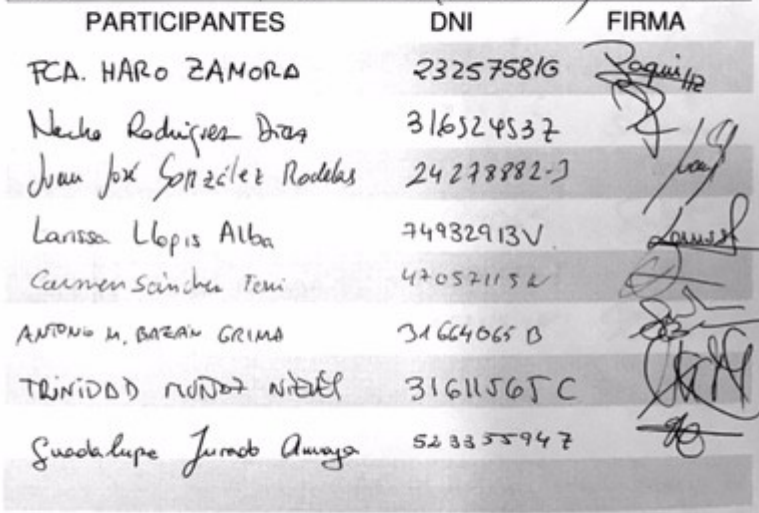 PARTICIPANTES DNI FIRMA
FCA. HARO ZAMORA 23257581G Paqui Hz
Rodríguez Díaz 31652453Z
Juan José González Rodelas 24278882-J
Larissa Llopis Alba 74932913V
Carmen Sánchez
ANTONIO M. BAZÁN GRIMA 31664065 B
TRINIDAD MUÑOZ 31611565 C
Guadalupe Jurado Amaya 52335594Z